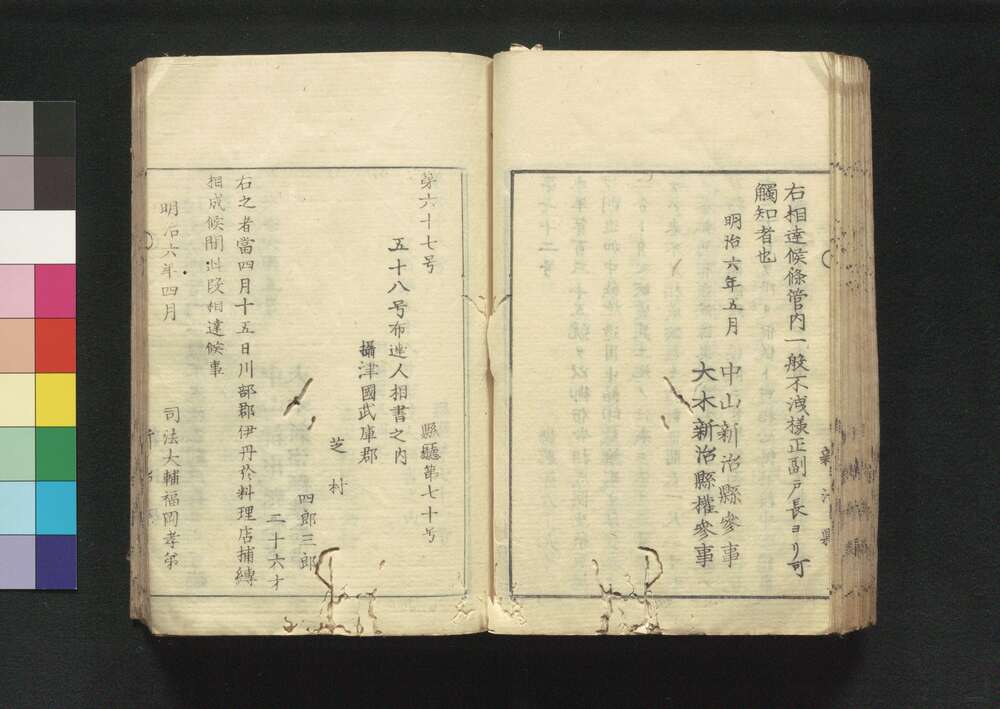 右相達候條管内一般不洩様正副戸長ヨリ可
觸知者也
明治六年五月
中山新治縣參事
大木新治縣權參事
第六十七号
縣廳第七十号
五十八号布達人相書之内
攝津國武庫郡
芝村
四郎三郎
二十六才
右之者當四月十五日川部郡伊丹於料理店捕縛
相成候間此段相達候事
明治六年四月
司法大輔福岡孝弟